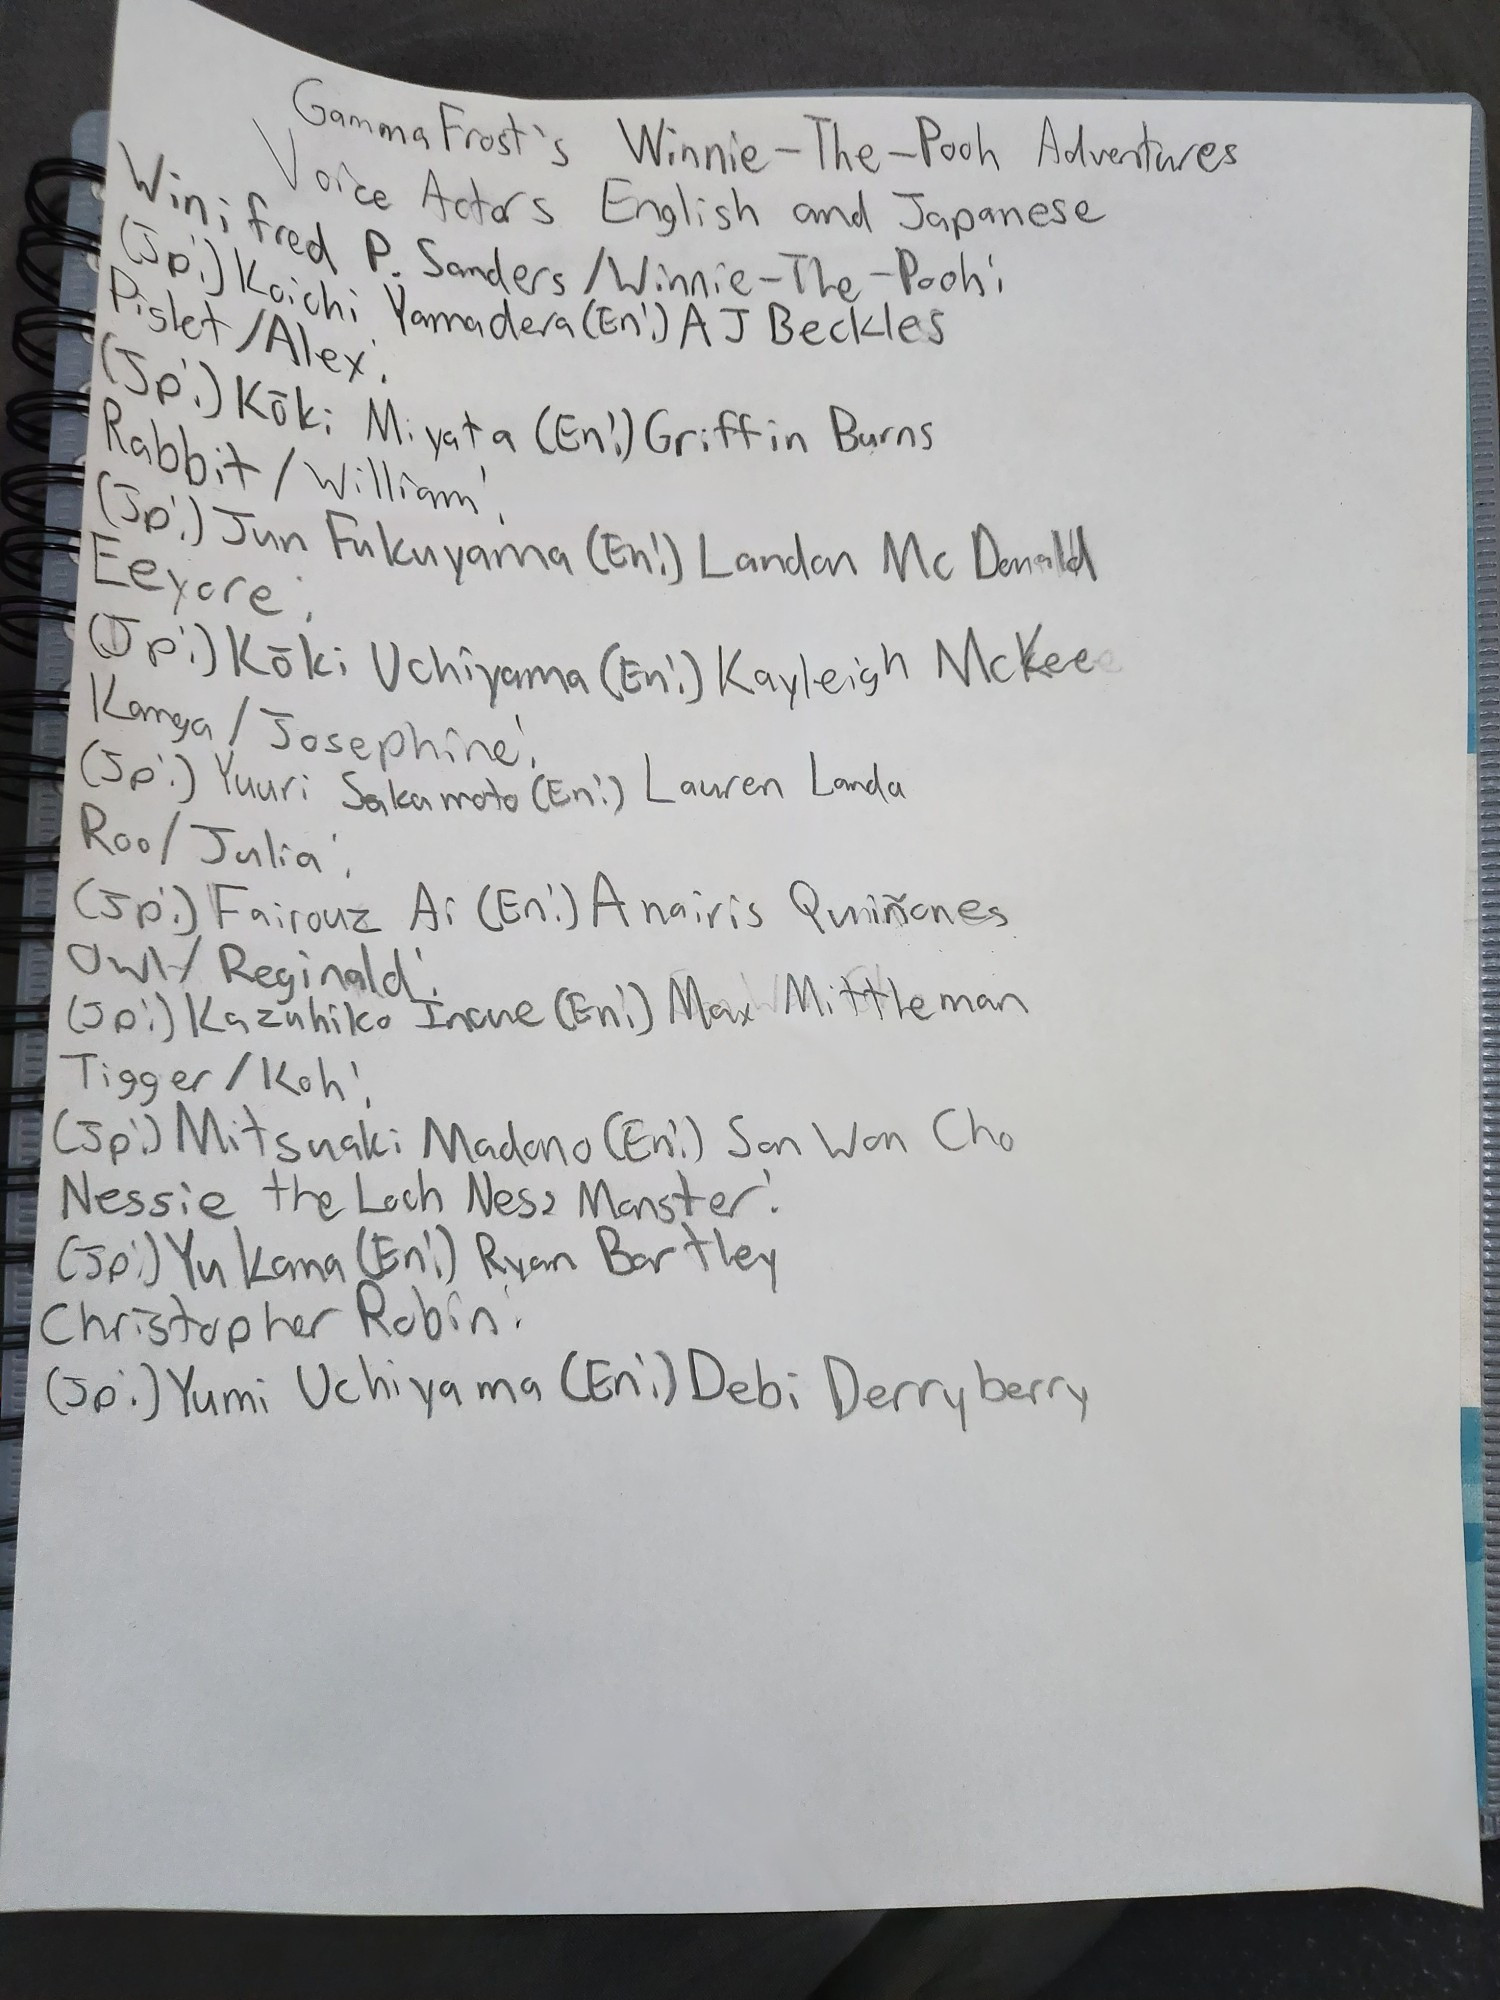 GammaFrost's Winnie-The-Pooh Adventures
Voice Actors English and Japanese
Winifred P. Sanders/Winnie-The-Pooh:
(Jp:) Koichi Yamadera (En:) A J Beckles
Piglet/Alex:
(Jp:) Kōki Miyata (En:) Griffin Burns
Rabbit/William:
(Jp:) Jun Fukuyama (En:) Landon McDonald
Eeyore:
(Jp:) Kōki Uchiyama (En:) Kayleigh McKee
Kanga/Josephine:
(Jp:) Yuuri Sakamoto (En:) Lauren Landa
Roo/Julia:
(Jp:) Fairouz Ai (En:) Anairis Quiñones
Owl/Reginald:
(Jp:) Kazuhiko Inoue (En:) Max Mittleman
Tigger/Koh:
(Jp:) Mitsuaki Madono (En:) Son Won Cho
Nessie the Loch Ness Monster:
(Jp:) Yukana (En:) Ryan Bartley
Christopher Robin:
(Jp:) Yumi Uchiyama (En:) Debi Derryberry